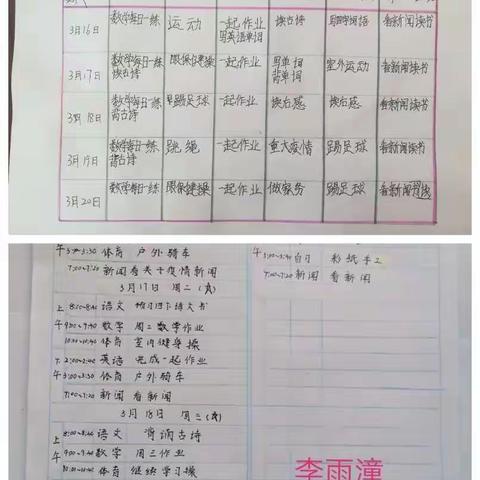 3月16日 数学每日一练 运动 一起作业 写英语单词 读古诗 看新闻读书
3月17日 数学每日一练 读古诗 眼保健操 一起作业 写单词 背单词 室外运动 看新闻读书
3月18日 数学每日一练 背古诗 踢足球 一起作业 读后感 读后感 看新闻读书
3月19日 数学每日一练 背古诗 跳绳 一起作业 重大疫情 踢足球 看新闻读书
3月20日 数学每日一练 眼保健操 一起作业 做家务 踢足球 看新闻
午 3:00~3:30 体育 户外骑车
7:00~7:20 新闻 看关于疫情新闻
3月17日 周二
上 8:00~8:40 语文
午 9:00~9:40 数学 周二数学作业
10:00~10:40 体育 室内健身操
下 2:00~2:40 英语 完成一起作业
午 3:00~3:30 体育 户外骑车
7:00~7:20 新闻 看新闻
3月18日 周三
上 8:00~8:40 语文 背诵古诗
午 9:00~9:40 数学 周三作业
10:00~10:40 体育 继续学习操
午 3:00~3:40 自习 彩纸手工
7:00~7:20 新闻 看新闻
李雨潼